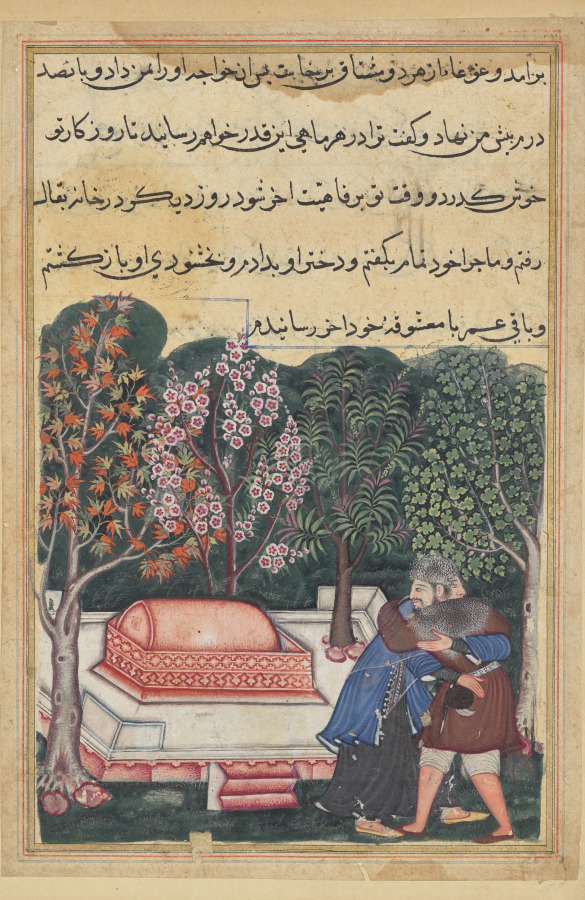 برآمد و غوغا از هر دو مشتاق برخاست پس آن خواجه او را بمن داد و پانصد
درم پیش من نهاد و گفت ترا در هر ماهی این قدر خواهم رسانید تا روزگار تو
خوش گذرد و وقت تو برفاهیت آخر شود روز دیگر در خانه بقال
رفتم و ماجرا خود تمام بگفتم و دختر او بدادم و بخشنودی او باز گشتم
و باقی عمر با معشوقهٔ خود آخر رسانیدم